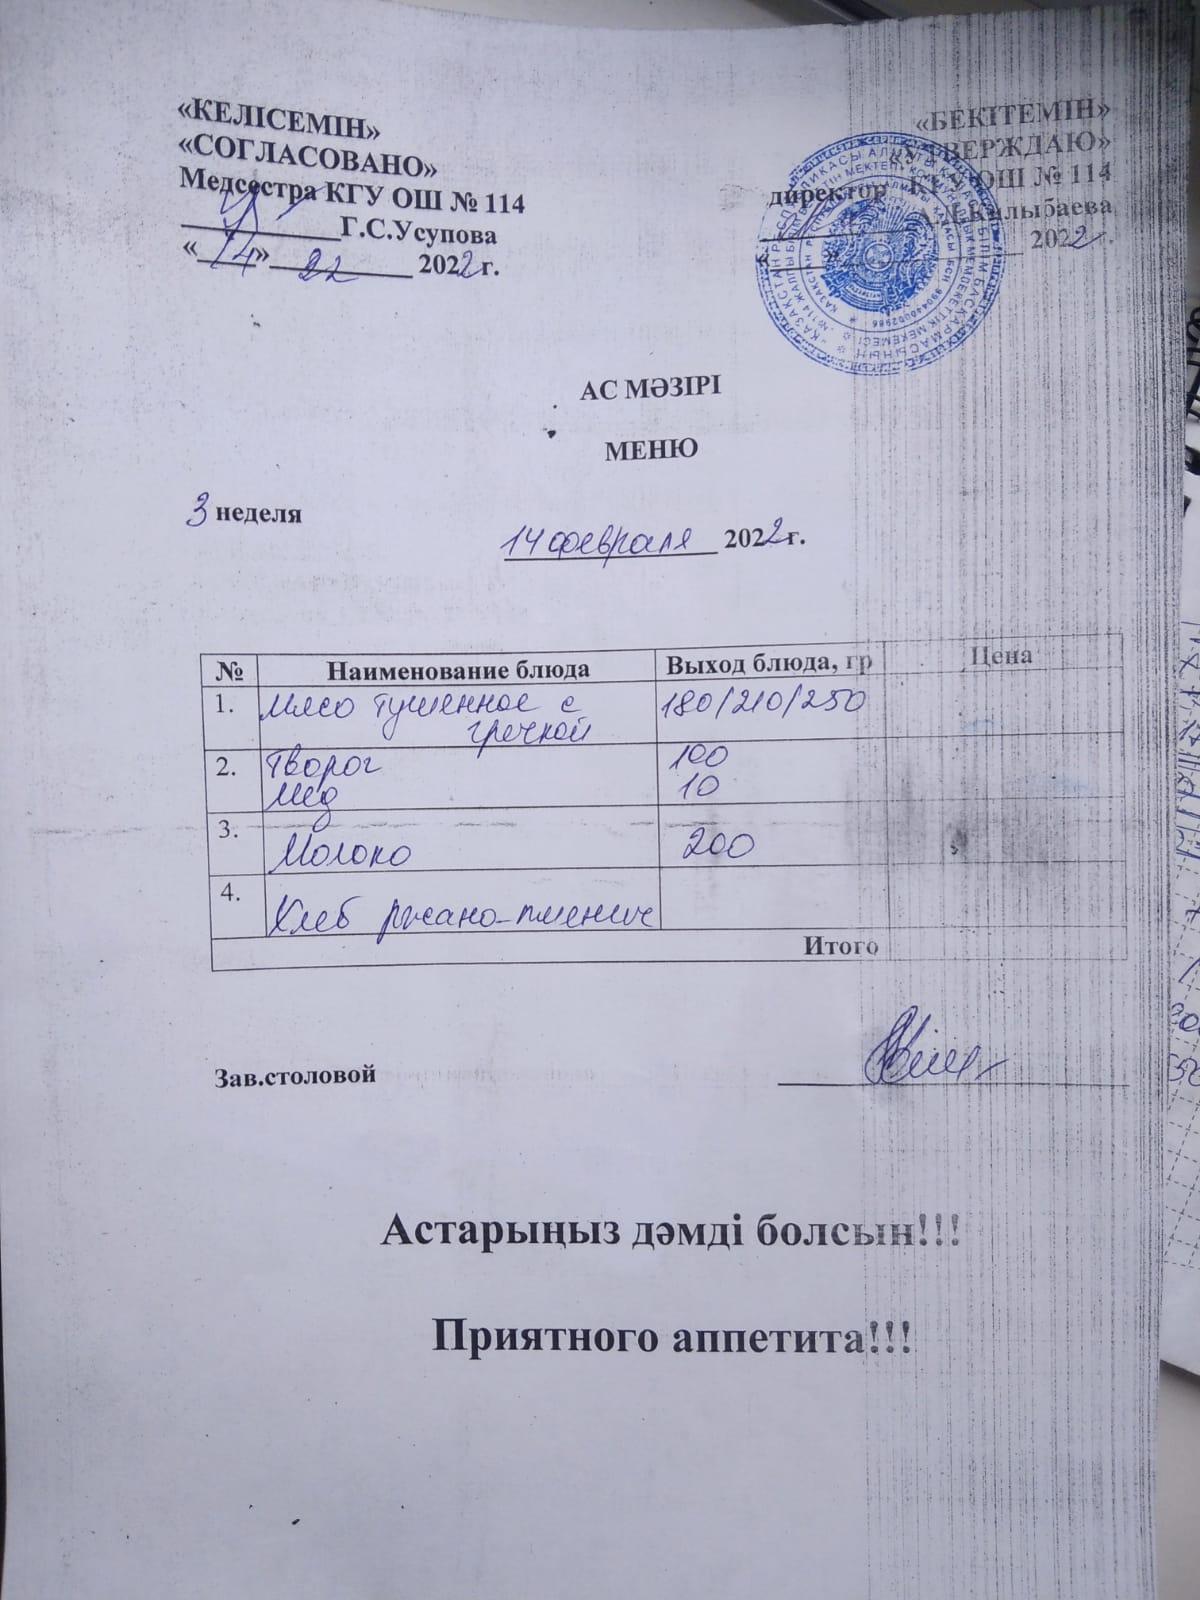 «КЕЛІСЕМІН»
«СОГЛАСОВАНО»
Медсестра КГУ ОШ № 114
Г.С.Усупова
«14» 22 2022 г.
«БЕКІТЕМІН»
«УТВЕРЖДАЮ»
директор КГУ ОШ № 114
2022 г.
АС МӘЗІРІ
МЕНЮ
3 неделя
14 февраля 2022 г.
№ Наименование блюда Выход блюда, гр Цена
1. Мясо тушенное с гречкой 180/210/250
2. Творог 100
Мед 10
3. Молоко 200
4. Хлеб ржано-пшенич
Итого
Зав.столовой
Астарыңыз дәмді болсын!!!
Приятного аппетита!!!